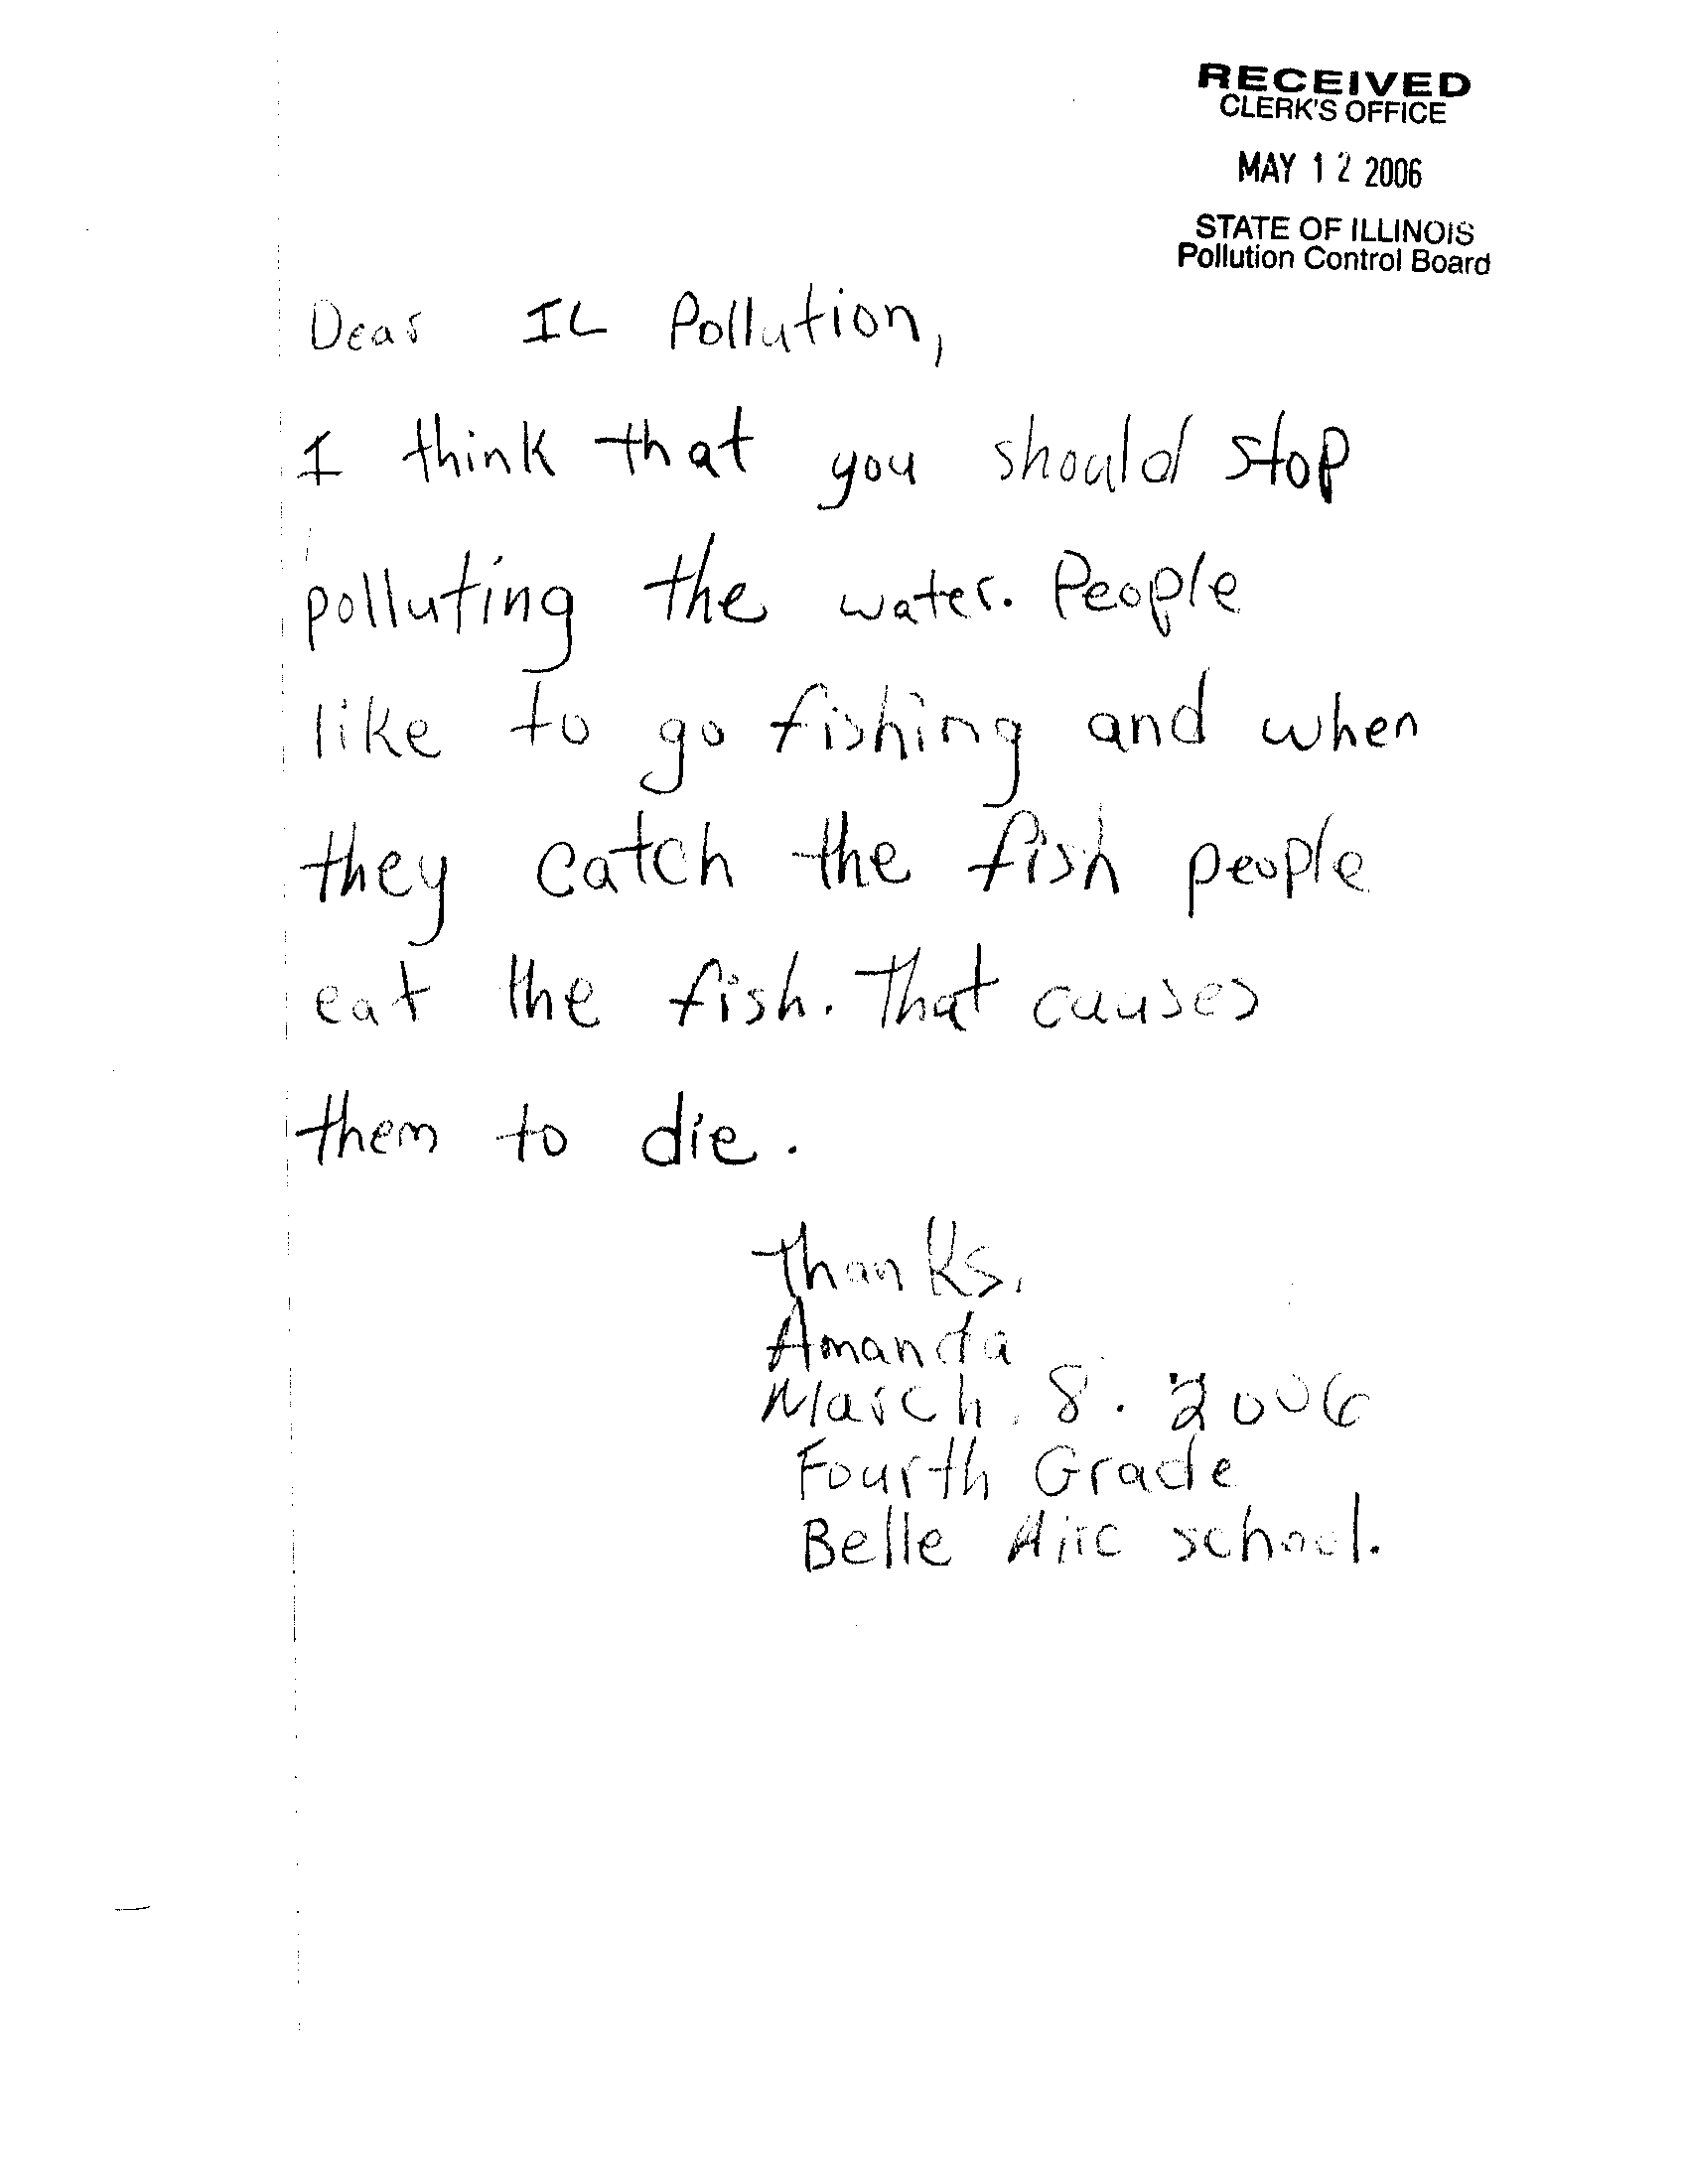 RECEIVED
CLERK'S OFFICE
MAY 12 2006
STATE OF ILLINOIS
Pollution Control Board
Dear IL Pollution,
I think that you should stop
polluting the water. People
like to go fishing and when
they catch the fish people
eat the fish. That causes
them to die.
Thanks,
Amanda
March. 8. 2006
Fourth Grade
Belle Aire school.